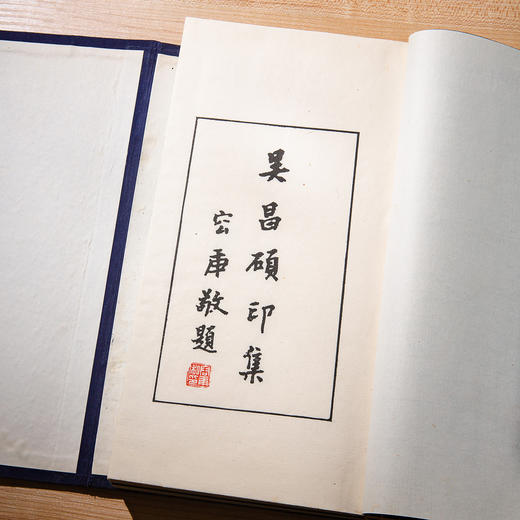 吴昌碩印集
容庚敬題